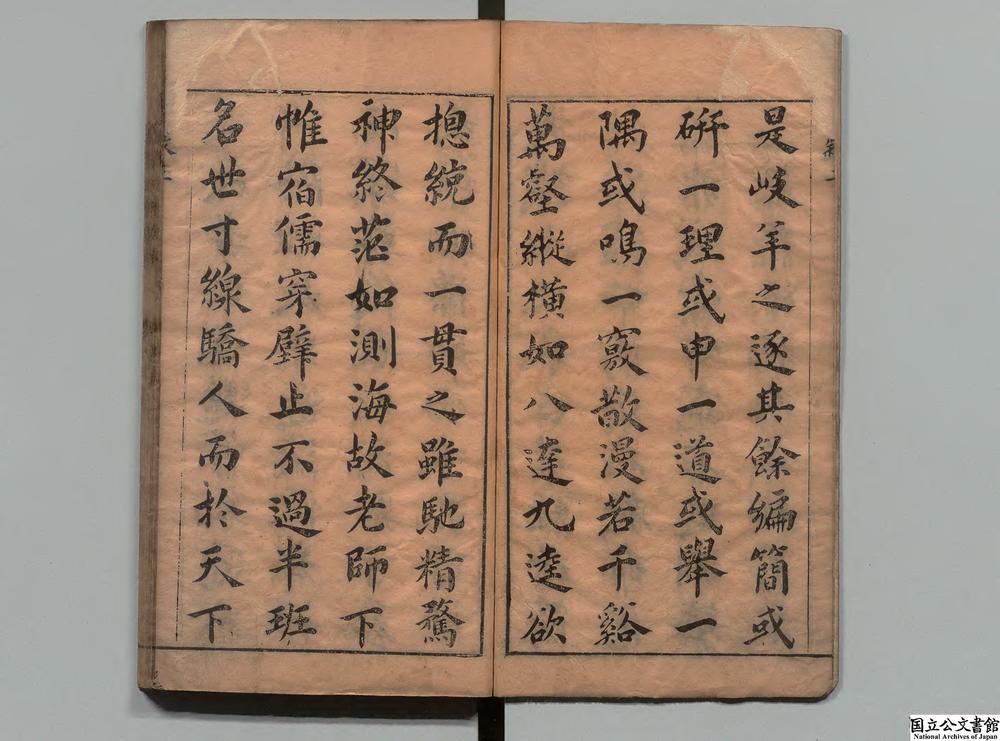 是岐羊之逐其餘編簡或
硏一理或申一道或舉一
隅或鳴一竅散漫若千谿
萬壑縱橫如八達九逵欲
摠統而一貫之雖馳精騖
神終茫如測海故老師下
帷宿儒穿壁止不過半班
名世寸線驕人而於天下
国立公文書館
National Archives of Japan